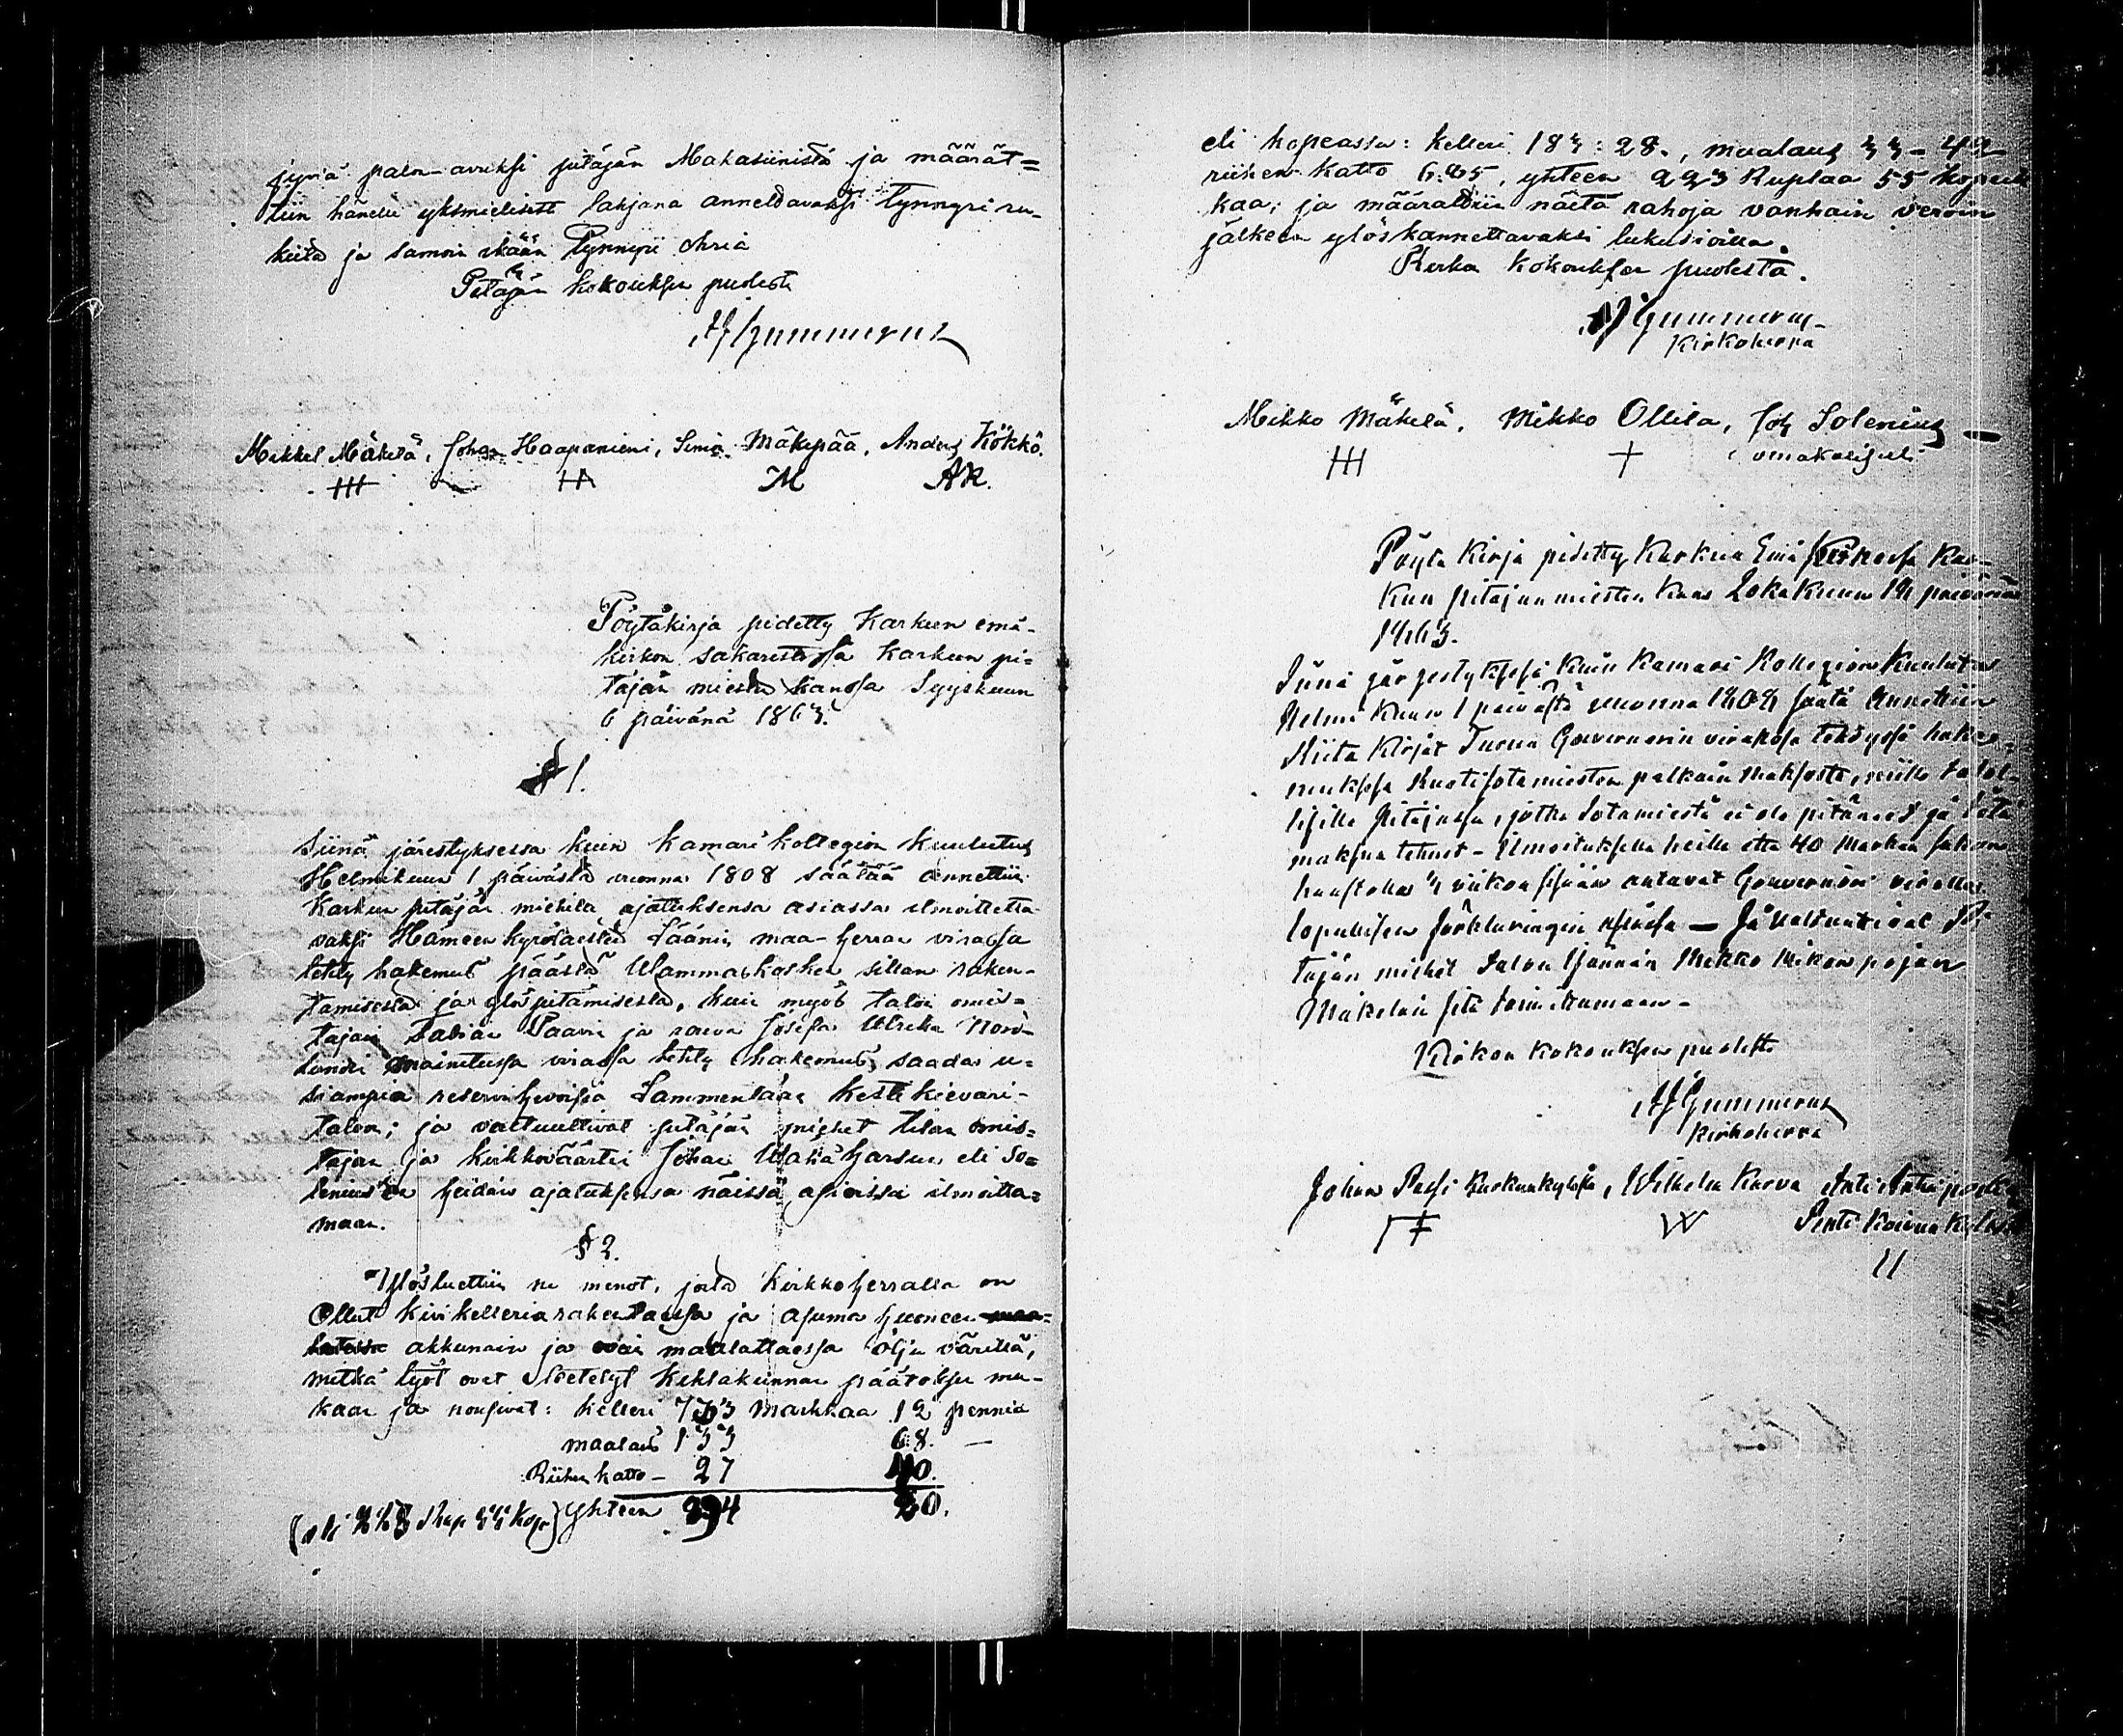 jyviä palon-avuksi pitäjän Makasiinista ja määrät=
tiin hänelle yksmielisesti lahjana annettavaksi Tynnyri ru-
kiita ja samoin ikään Tynnyri ohria
Pitäjän kokouksen puolesta
Gummerus
Mikkel Mäkelä, Johan Haapaniemi, Simo Mäkipää, Anders Kökkö.
HH HA M AK.
Pöytäkirja pidetty Karkun emä-
kirkon sakaristossa Karkun pi=
täjän miesten kanssa Syyskuun
6 päivänä 1863.
§ 1.
Siinä järestyksessä kuin Kamari kollegion Kuulutus
Helmikuun 1 päivästä vuonna 1808 säätää annettiin
Karkun pitäjän miehilä ajatuksensa asiassa ilmoitetta-
vaksi Hämeenkyröläisten Läänin maa-herran virassa
tehty hakemus päästä Wammaskosken sillan raken-
tamisesta ja ylöspitämisestä, kuin myös talon omis=
tajan Fabian Paavi ja rouva Josefa Ulrika Nord-
lundin mainitussa virassa tehty hakemus saada u=
siampia reservihevoisia Lammentaan Kestikievari-
taloon; ja valtuuttivat pitäjän miehet tilan omis=
tajan ja kirkkoväärtin Johan Wähä Harsun eli So=
lenius'en heidän ajatuksensa näissä asioissa ilmoitta=
maan.
§ 2.
Ylösluettiin ne menot, joita Kirkkoherralla on
Ollut kivikelleria rakentaessa ja asuma huoneen
akkunain ja ovin maalattaessa öljy värillä,
mitkä työt ovat tehdyt kihlakunnan päätöksen mu-
kaan ja nousivat: kelleri 733 markkaa 12 penniä
maalaus 133 68. —
Riihen katto — 27 40.
(eli 223 Rup 55 Kop) Yhteen 894 20.
eli hopeassa: kelleri 183:28., maalaus 33-42
riihen katto 6:85, yhteen 223 Ruplaa 55 kopeik
kaa; ja määrättiin näitä rahoja vanhain veroin
jälkeen ylöskannettavaksi lukusioilla.
Kirko Kokouksen puolesta.
Gummerus
Kirkoherra
Mikko Mäkelä, Mikko Ollila, Joh Solenius
HH + omakätisesti
Pöytä Kirja pidetty Karkun Emä Kirkossa Kar-
kun pitäjän miesten kans Lokakuun 18 päivänä
1863.
Siinä järjestyksessä kuin Kamari Kollegion Kuulutus
Helmi Kuun 1 päivästä vuonna 1808 säätä Annettiin
Niitä Kirjat Turun Gouvernorin virassa tehdyssä hake-
muksessa Ruotisotamiesten palkain maksosta, niille talol-
lisille Pitäjässä, jotka Sotamiestä ei ole pitäneet ja sitä
maksua tehnet - ilmoituksella heille että 40 markan sakon
haastolla 4 viikon sisään antavat Gouvernörin virallen
lopullisen Förklaringin asiassa — Ja valtuuttivat Pi-
täjän miehet Talon Isännän Mikko Mikon pojan
Mäkelän sitä toimittamaan -
Kirkon Kokouksen puolesta
Gummerus
Kirkoherra
Johan Passi Karkunkylästä, Wilhelm Karva Anti Antinpoika
W Pirti
11